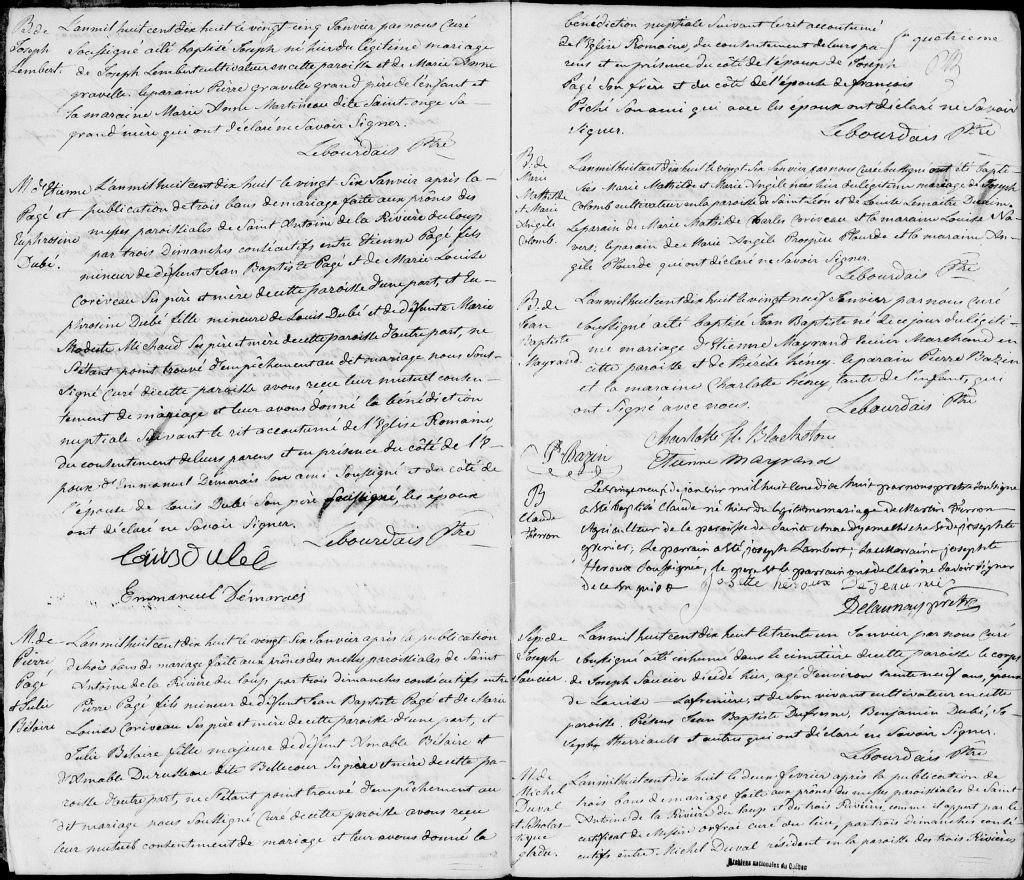 B. de
Joseph
Lembert.
L'anmil huit cent dix huit le vingt cinq Janvier par nous Curé
Soussigné a été baptisé Joseph né hier du légitime mariage
de Joseph Lembert cultivateur en cette paroisse et de Marie Anne
Gravelle. le parain Pierre Gravelle grand père de l'enfant et
la maraine Marie Anne Martineau dite Saint-onge Sa
grand'mère qui ont déclaré ne Savoir Signer.
Lebourdais Ptre
M. d'Etienne
Pagé et
Euphrosine
Dubé.
L'anmil huit cent dix huit le vingt Six Janvier après la
publication de trois bans de mariage faite aux prônes des
messes paroissiales de Saint Antoine de la Rivière du loup
par trois Dimanches consécutifs entre Etienne Pagé fils
mineur de défunt Jean Baptiste Pagé et de Marie Louise
Coriveau Ses père et mère de cette paroisse d'une part, et Eu-
phrosine Dubé fille mineure de Louis Dubé et de défunte Marie
Modeste Michaud Ses père et mère de cette paroisse d'autre part, ne
S'étant point trouvé d'empêchement au dit mariage nous Sous-
Signé Curé de cette paroisse avons reçu leur mutuel consen-
tement de mariage et leur avons donné la bénédiction
nuptiale Suivant le rit accoutumé de l'Eglise Romaine
du consentement de leurs parens et en présence du côté de l'é-
poux d'Emmanuel Demarais Son ami Soussigné et du côté de
l'épouse de Louis Dubé Son père Soussigné, les époux
ont déclaré ne Savoir Signer.
Lebourdais Ptre
Emmanuel Démarais
M. de
Pierre
Pagé
et Julie
Bélaire
L'anmil huit cent dix huit le vingt Six Janvier après la publication
de trois bans de mariage faite aux prônes des messes paroissiales de Saint
Antoine de la Rivière du loup par trois dimanches consécutifs entre
Pierre Pagé fils mineur de défunt Jean Baptiste Pagé et de Marie
Louise Coriveau Ses père et mère de cette paroisse d'une part, et
Julie Bélaire fille majeure de défunt Amable Bélaire et
d'Amable Durulleau dite Bellecour Ses père et mère de cette pa-
roisse d'autre part, ne S'étant point trouvé d'empêchement au
dit mariage nous Soussigné Curé de cette paroisse avons reçu
leur mutuel consentement de mariage et leur avons donné la
bénédiction nuptiale Suivant le rit accoutumé
de l'Eglise Romaine, du consentement de leurs pa-
rens et en présence du côté de l'époux de Joseph
Pagé Son frère et du côté de l'épouse de françois
Piché Son ami qui avec les époux ont déclaré ne Savoir
Signer.
Lebourdais Ptre
quatrieme
B. de
Marie
Mathilde
et Marie
Angèle
Colomb.
L'anmil huit cent dix huit le vingt Six Janvier par nous Curé Soussigné ont été bapti-
sées Marie Mathilde et Marie Angèle nées hier du légitime mariage de Joseph
Colomb cultivateur en la paroisse de Saint Léon et de Louise Lemaitre
Le parain de Marie Mathilde Charles Coriveau et la maraine Louise
le parain de Marie Angèle Prospère Plourde et la maraine An-
gèle Plourde qui ont déclaré ne Savoir Signer.
Lebourdais Ptre
B. de
Jean
Baptiste
Mayrand
L'anmil huit cent dix huit le vingt neuf Janvier par nous Curé
Soussigné a été baptisé Jean Baptiste né de ce jour du légiti-
me mariage d'Etienne Mayrand Ecuier Marchand en
cette paroisse et de Thérèse Héney. le parain Pierre Bazin
et la maraine Charlotte Héney tante de l'enfant, qui
ont Signé avec nous.
Lebourdais Ptre
Charlotte H. Blackstone
Pr Bazin
Etienne Mayrand
B
Claude
Pierron
Le vingt neuf de janvier mil huit cent dix huit par nous pretre Soussigné
a été baptisé Claude né hier du legitime mariage de Martin Pierron
Agriculteur de la paroisse de Sainte Anne et de josephte
grenier, Le parrain a été joseph Lambert; La marraine josephte
Heroux Soussignée, le pere et le parrain ont declaré ne Savoir Signer
de ce enquis
josette heroux
Delaunay prêtre
Sep. de
Joseph
Saucier.
L'anmil huit cent dix huit le trente un Janvier par nous Curé
Soussigné a été inhumé dans le cimetière de cette paroisse le corps
de Joseph Saucier décédé hier, agé d'environ trente neuf ans, époux
de Louise Lafrenière, et de Son vivant cultivateur en cette
paroisse. Présens Jean Baptiste Dufresne, Benjamin Dubé, Jo-
seph Therriault et autres qui ont déclaré ne Savoir Signer.
Lebourdais Ptre
M. de
Michel
Duval
et Scholas-
tique
L'anmil huit cent dix huit le deux février après la publication de
trois bans de mariage faite aux prônes des messes paroissiales de Saint
Antoine de la Rivière du loup et des trois Rivières, comme il appert par le
certificat de Messire curé du lieu, par trois dimanches consé-
cutifs entre Michel Duval résident en la paroisse des trois Rivières
Archives nationales du Québec